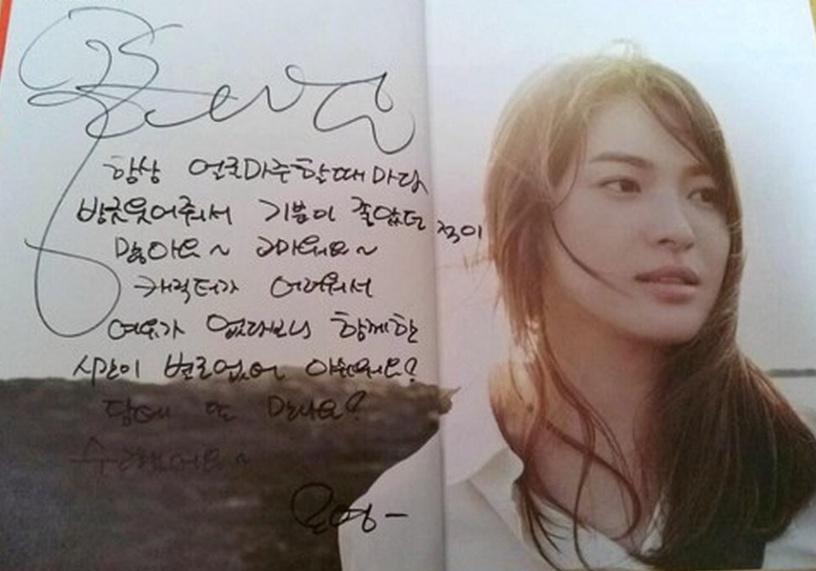 항상 얼굴마주할때마다
방긋웃어줘서 기분이 좋았던 적이
많아요~ 고마워요~
캐릭터가 어려워서
여유가 없다보니 함께한
시간이 별로없어 아쉬워요?
담에 또 만나요?
수고했어요~